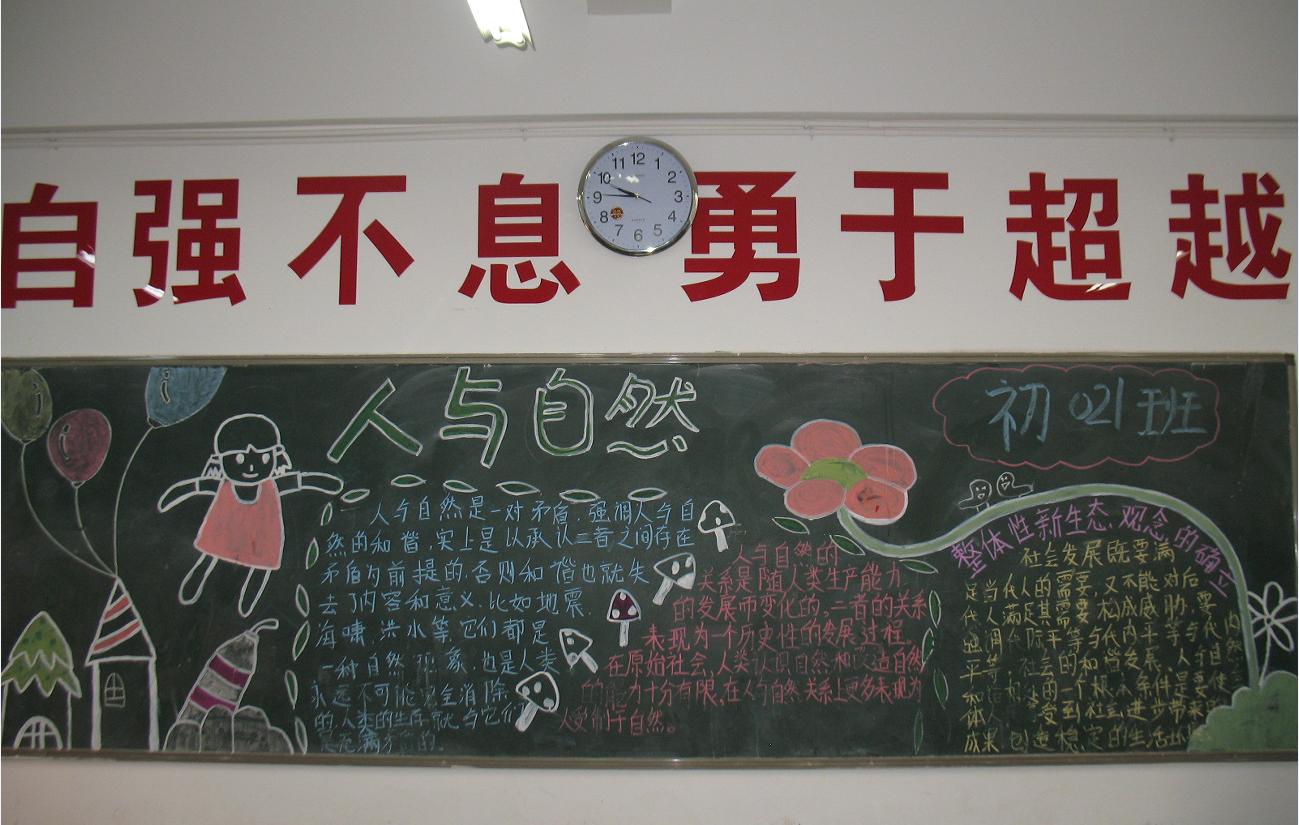 自强不息 勇于超越
12
11
1
10
2
9
3
8
4
7
5
6
人与自然
初021班
人与自然是一对矛盾.强调人与自
然的和谐,实上是以承认二者之间存在
矛盾为前提的.否则和谐也就失
去了内容和意义.比如地震.
海啸.洪水等.它们都是
一种自然现象.也是人类
永远不可能完全消除
的.人类的生存就与它们
充满矛盾的.
人与自然的
关系是随人类生产能力
的发展而变化的,二者的关系
表现为一个历史性的发展过程
在原始社会,人类认识自然和改造自然
的能力十分有限,在人与自然关系上更多表现为
人受制于自然。
整体性新生态观念的确立
社会发展既要满
足当代人的需要,又不能对后
代人满足其需要构成威胁,要
强调代际平等与代内平等与代内
平等 社会的和谐发展、人与自然
和谐 的一个根本条件是要使
体 受到社会进步带来的
成果 创造稳定的生活